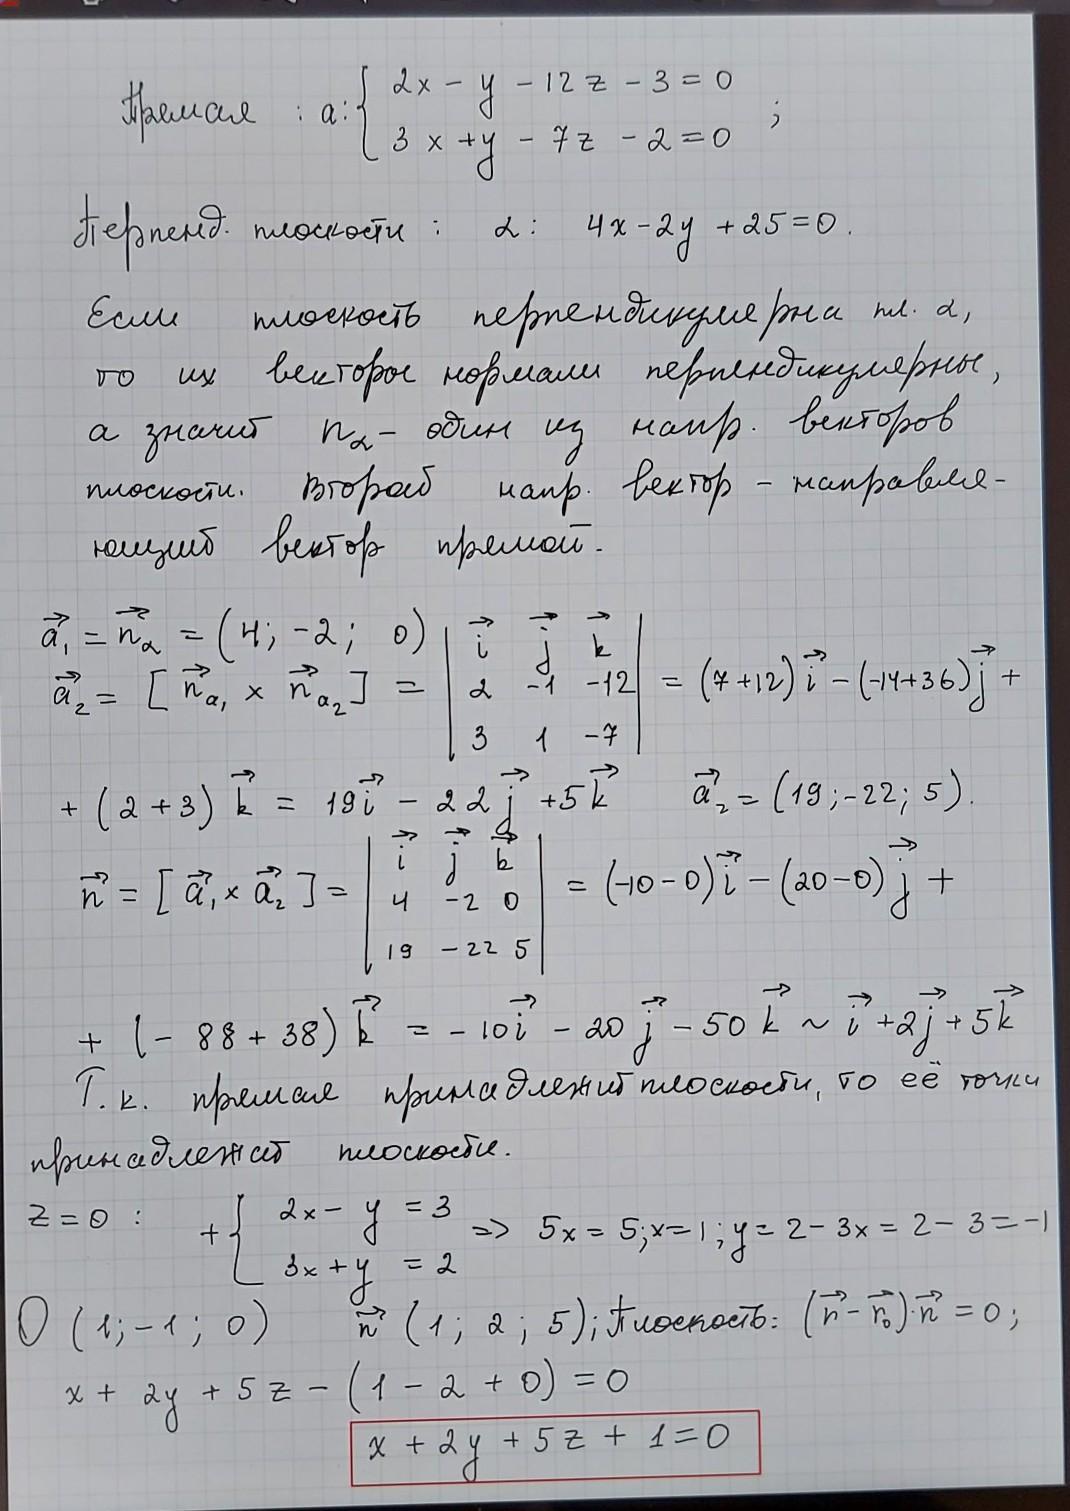 Прямая : a: { 2x - y - 12z - 3 = 0
3x + y - 7z - 2 = 0 ;
Перпенд. плоскости : α : 4x - 2y + 25 = 0.
Если плоскость перпендикулярна пл. α,
то их векторы нормали перпендикулярны,
а значит n_α - один из напр. векторов
плоскости. Второй напр. вектор - направля-
ющий вектор прямой.
a⃗₁ = n⃗_α = (4; -2; 0)
a⃗₂ = [n⃗_a₁ × n⃗_a₂] = | i⃗ j⃗ k⃗ | 2 -1 -12 | 3 1 -7 | = (7+12)i⃗ - (-14+36)j⃗ +
+ (2+3)k⃗ = 19i⃗ - 22j⃗ + 5k⃗ a⃗₂ = (19; -22; 5).
n⃗ = [a⃗₁ × a⃗₂] = | i⃗ j⃗ k⃗ | 4 -2 0 | 19 -22 5 | = (-10-0)i⃗ - (20-0)j⃗ +
+ (-88+38)k⃗ = -10i⃗ - 20j⃗ - 50k⃗ ~ i⃗ + 2j⃗ + 5k⃗
Т.к. прямая принадлежит плоскости, то её точки
принадлежат плоскости.
z = 0 : + { 2x - y = 3
3x + y = 2 => 5x = 5; x = 1; y = 2 - 3x = 2 - 3 = -1
O (1; -1; 0) n⃗ (1; 2; 5); Плоскость: (r⃗ - r⃗₀)·n⃗ = 0;
x + 2y + 5z - (1 - 2 + 0) = 0
x + 2y + 5z + 1 = 0